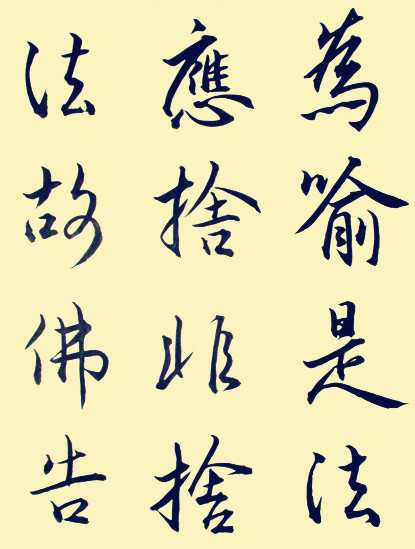 為喻是法
應捨非捨
法故佛告